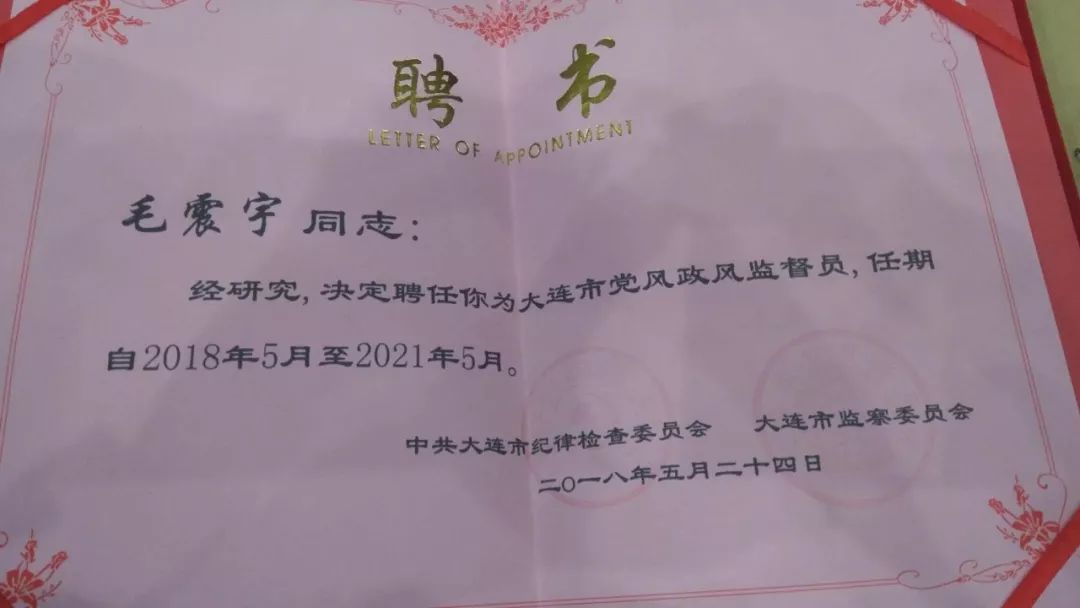 聘 书
LETTER OF APPOINTMENT
毛震宇同志：
经研究,决定聘任你为大连市党风政风监督员,任期
自2018年5月至2021年5月。
中共大连市纪律检查委员会 大连市监察委员会
二〇一八年五月二十四日